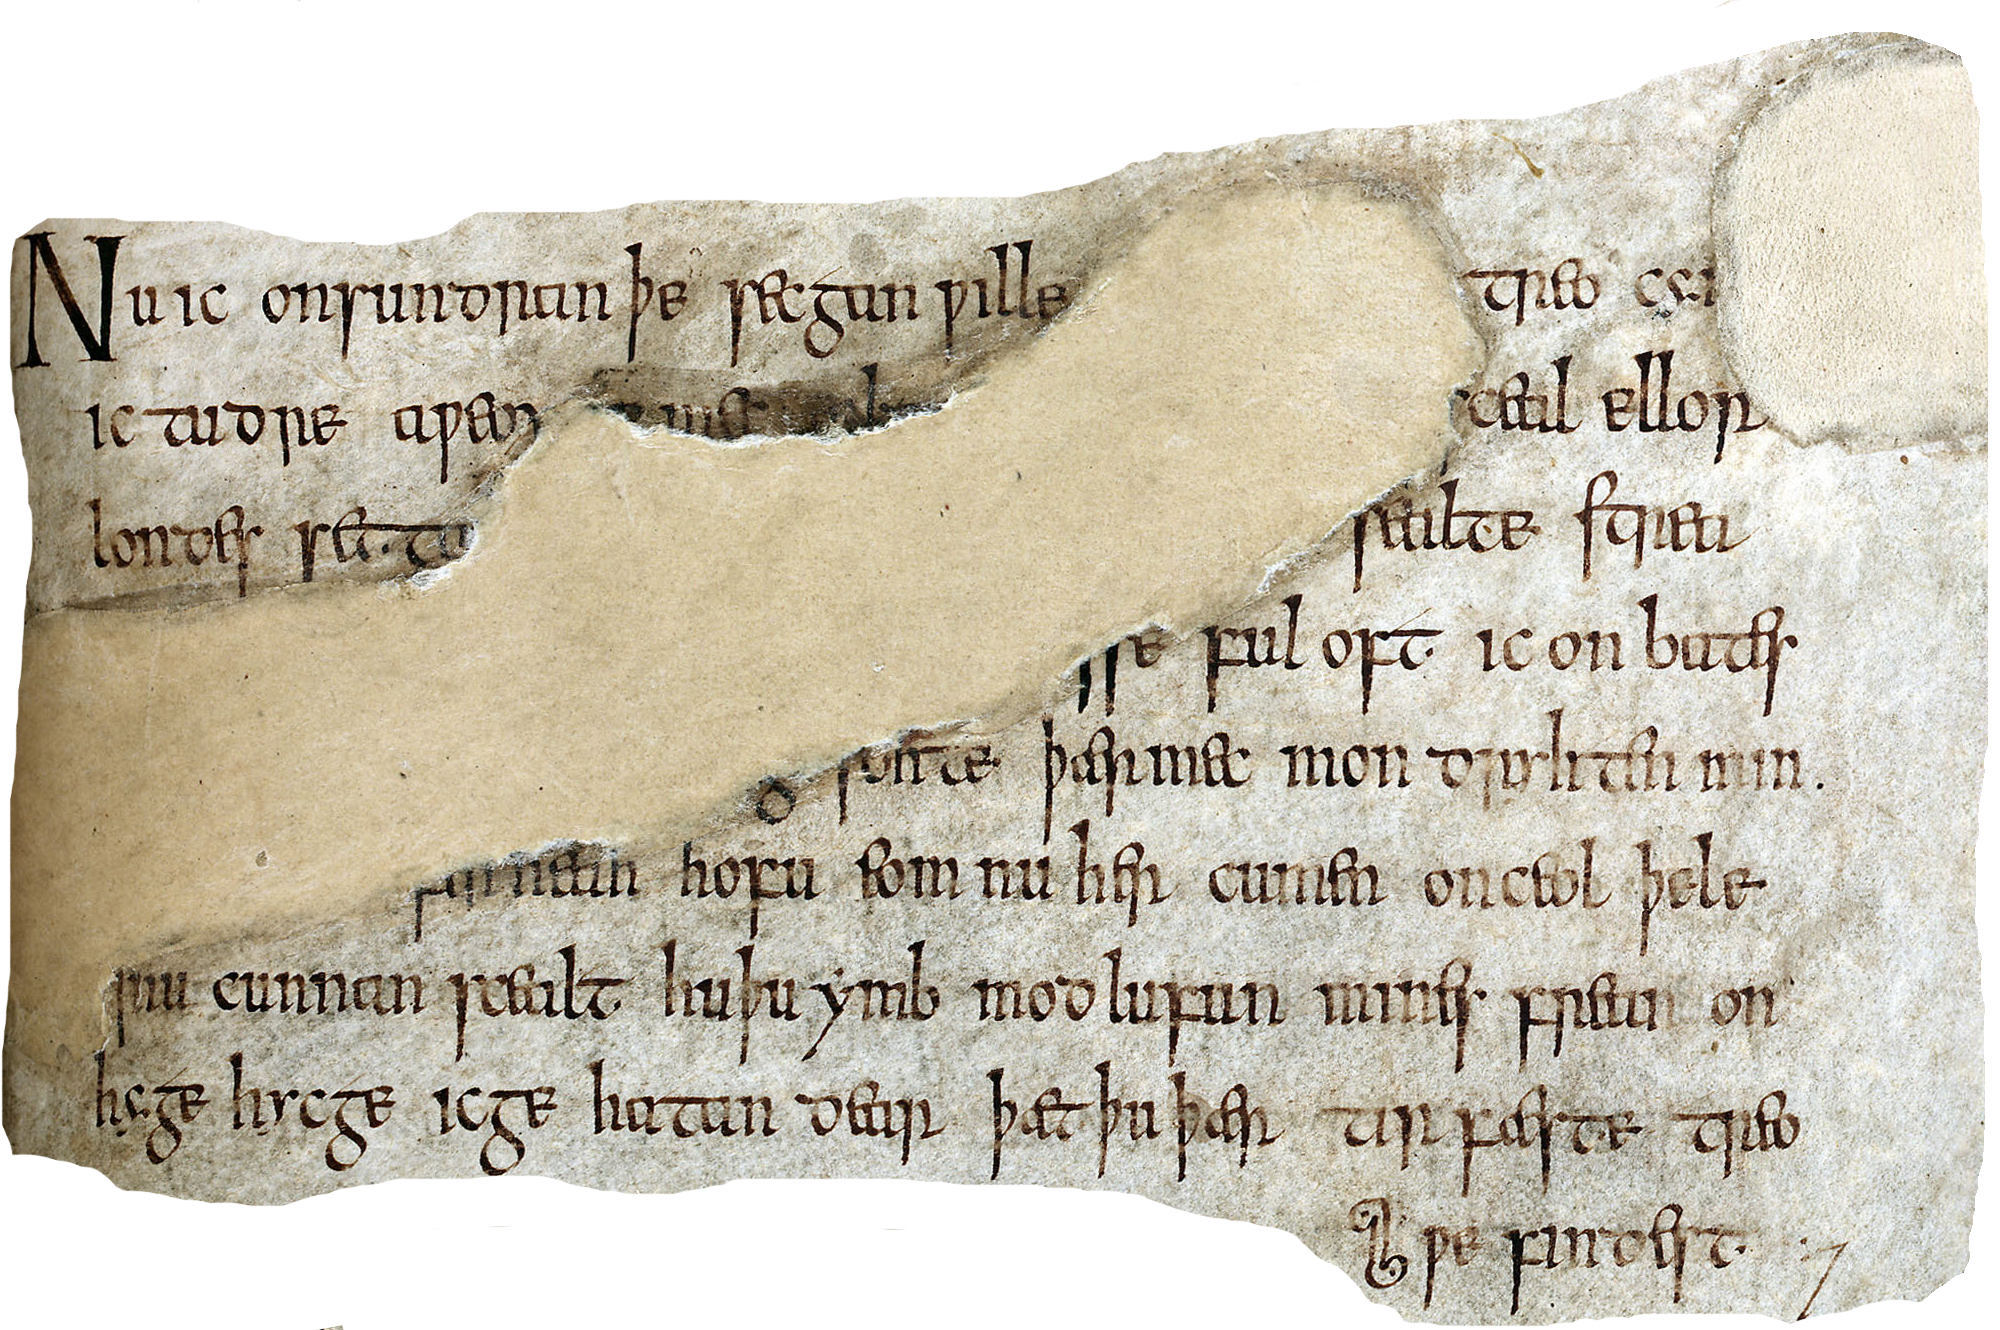 Nu ic onsundran þe secgan ƿille treo cyn
ic tudre aƿeox mec sceal ellor
londes settan sealte strea
sse ful oft ic on bates
sohte þær mec mon dryhten min.
ofer heah hofu eom nu her cumen on ceol þele
nu cunnan scealt hu þu ymb modlufun mines frean on
hyge hycge ic ge hatan dear þæt þu þær tir fæste treo
ƿe findest.